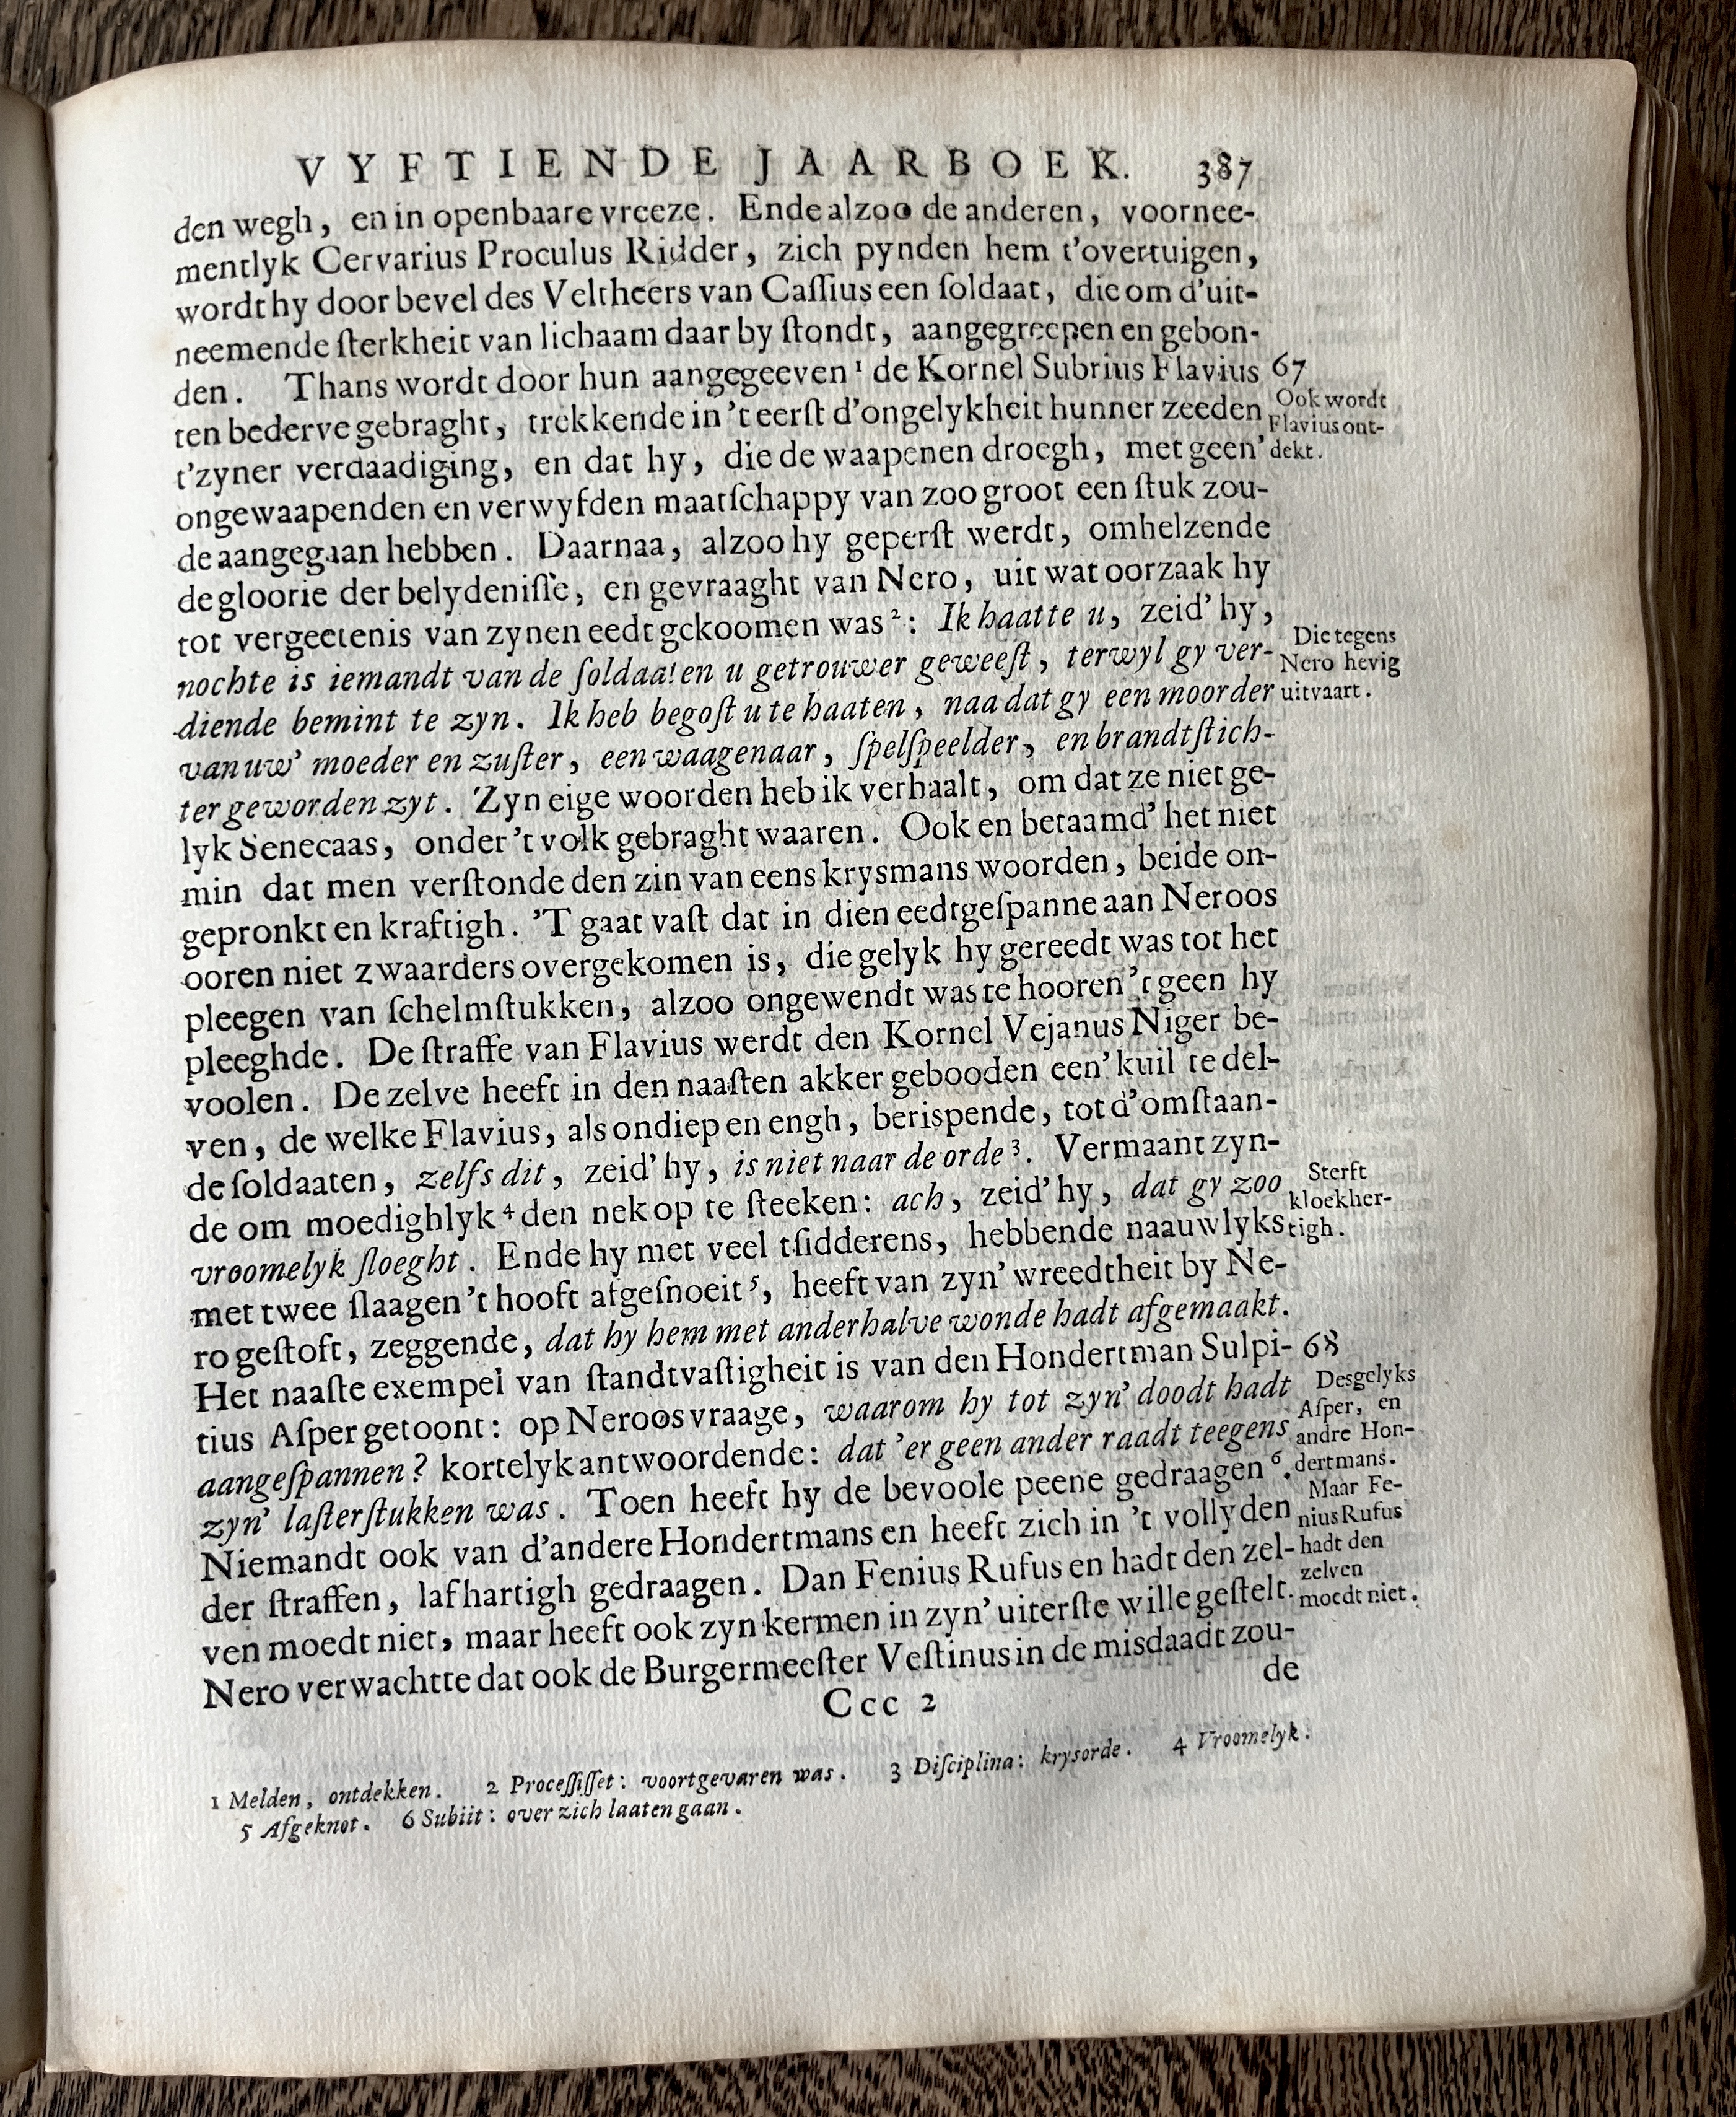 VYFTIENDE JAARBOEK. 387
den wegh, en in openbaare vreeze. Ende alzoo de anderen, voornee-
mentlyk Cervarius Proculus Ridder, zich pynden hem t'overtuigen,
wordt hy door bevel des Veltheers van Caſſius een ſoldaat, die om d'uit-
neemende ſterkheit van lichaam daar by ſtondt, aangegreepen en gebon-
den. Thans wordt door hun aangegeeven¹ de Kornel Subrius Flavius 67
ten bederve gebraght, trekkende in 't eerſt d'ongelykheit hunner zeeden
t'zyner verdaadiging, en dat hy, die de waapenen droegh, met geen'
ongewaapenden en verwyfden maatſchappy van zoo groot een ſtuk zou-
de aangegaan hebben. Daarnaa, alzoo hy geperſt werdt, omhelzende
de gloorie der belydeniſſe, en gevraaght van Nero, uit wat oorzaak hy
tot vergeetenis van zynen eedt gekoomen was²: Ik haatte u, zeid' hy,
nochte is iemandt van de ſoldaaten u getrouwer geweeſt, terwyl gy ver-
diende bemint te zyn. Ik heb begoſt u te haaten, naa dat gy een moorder
van uw' moeder en zuſter, een waagenaar, ſpelſpeelder, en brandtſtich-
ter geworden zyt. Zyn eige woorden heb ik verhaalt, om dat ze niet ge-
lyk Senecaas, onder 't volk gebraght waaren. Ook en betaamd' het niet
min dat men verſtonde den zin van eens krysmans woorden, beide on-
gepronkt en kraftigh. 'T gaat vaſt dat in dien eedtgeſpanne aan Neroos
ooren niet zwaarders overgekomen is, die gelyk hy gereedt was tot het
pleegen van ſchelmſtukken, alzoo ongewendt was te hooren 't geen hy
pleeghde. De ſtraffe van Flavius werdt den Kornel Vejanus Niger be-
voolen. De zelve heeft in den naaſten akker gebooden een' kuil te del-
ven, de welke Flavius, als ondiep en engh, berispende, tot d'omſtaan-
de ſoldaaten, zelfs dit, zeid' hy, is niet naar de orde³. Vermaant zyn-
de om moedighlyk⁴ den nek op te ſteeken: ach, zeid' hy, dat gy zoo
vroomelyk ſloeght. Ende hy met veel tſidderens, hebbende naauwlyks
met twee ſlaagen 't hooft afgeſnoeit⁵, heeft van zyn' wreedtheit by Ne-
ro geſtoft, zeggende, dat hy hem met anderhalve wonde hadt afgemaakt.
Het naaſte exempel van ſtandtvaſtigheit is van den Hondertman Sulpi- 68
tius Aſper getoont: op Neroos vraage, waarom hy tot zyn' doodt hadt
aangeſpannen? kortelyk antwoordende: dat 'er geen ander raadt teegens
zyn' laſterſtukken was. Toen heeft hy de bevoole peene gedraagen⁶.
Niemandt ook van d'andere Hondertmans en heeft zich in 't vollyden
der ſtraffen, lafhartigh gedraagen. Dan Fenius Rufus en hadt den zel-
ven moedt niet, maar heeft ook zyn kermen in zyn' uiterſte wille geſtelt.
Nero verwachtte dat ook de Burgermeeſter Veſtinus in de misdaadt zou-
de
Ccc 2
Ook wordt
Flavius ont-
dekt.
Die tegens
Nero hevig
uitvaart.
Sterft
kloekher-
tigh.
Desgelyks
Aſper, en
andre Hon-
dertmans.
Maar Fe-
nius Rufus
hadt den
zelven
moedt niet.
1 Melden, ontdekken. 2 Proceſſiſſet: voortgevaren was. 3 Diſciplina: krysorde. 4 Vroomelyk.
5 Afgeknot. 6 Subiit: over zich laaten gaan.